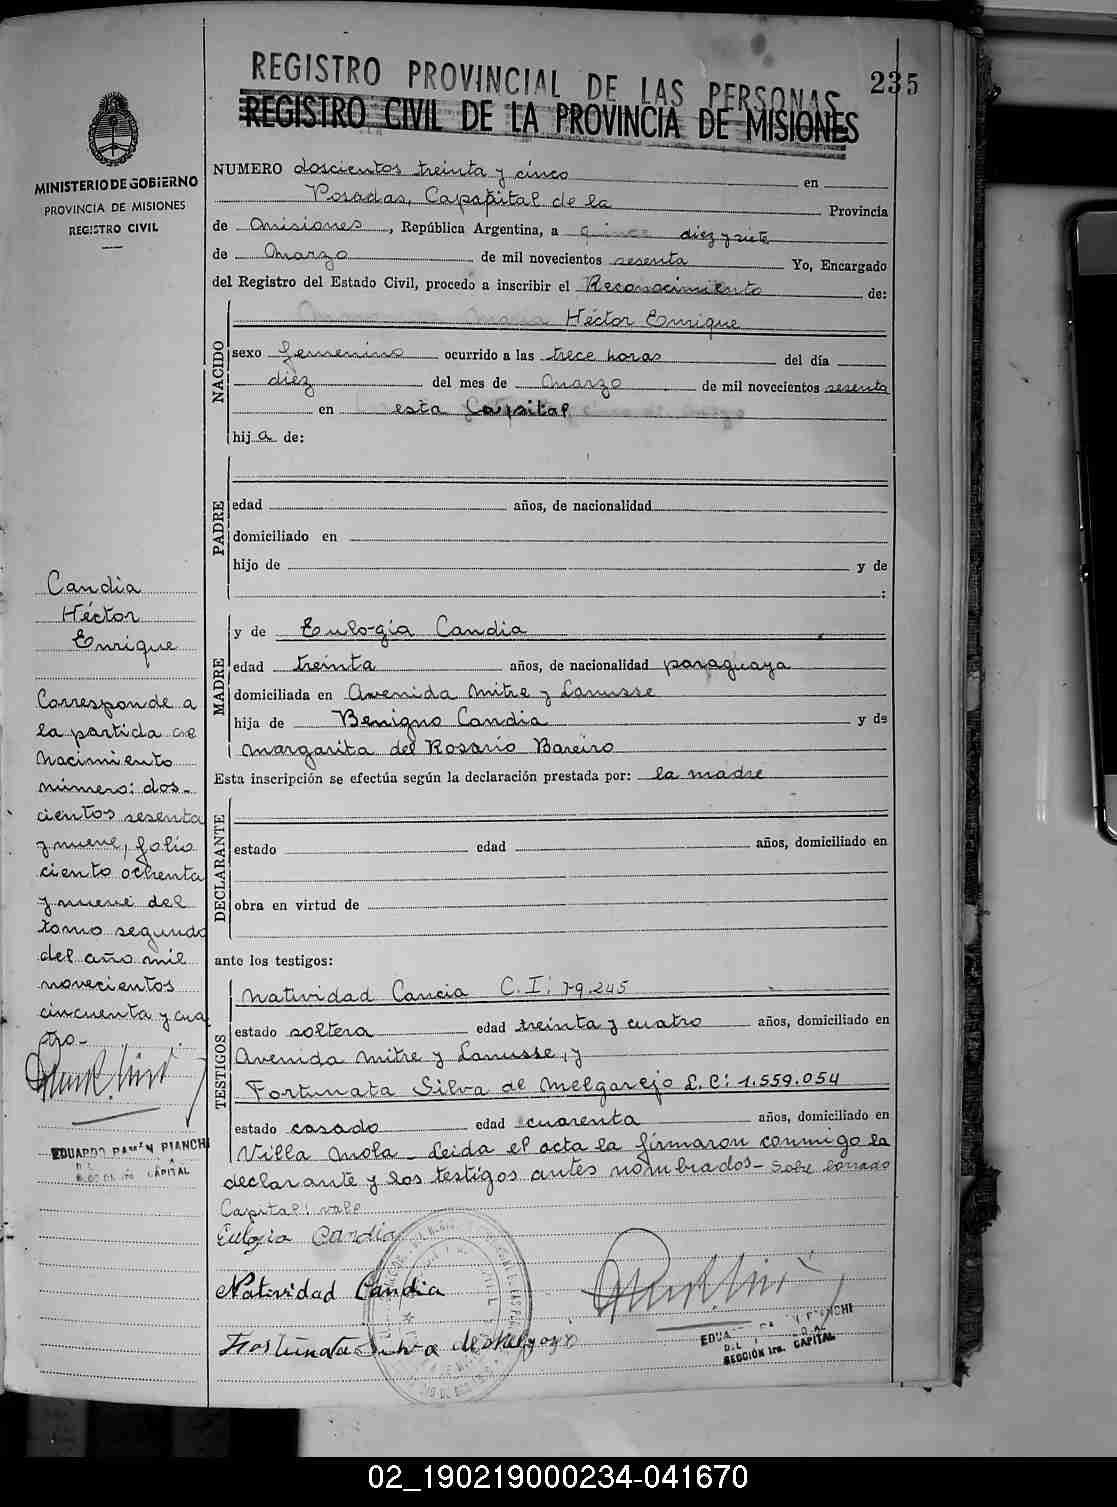 REGISTRO PROVINCIAL DE LAS PERSONAS
235
REGISTRO CIVIL DE LA PROVINCIA DE MISIONES
MINISTERIO DE GOBIERNO
PROVINCIA DE MISIONES
REGISTRO CIVIL
NUMERO doscientos treinta y cinco en
Posadas, Capapital de la Provincia
de Misiones, República Argentina, a quince diez y siete
de Marzo de mil novecientos sesenta Yo, Encargado
del Registro del Estado Civil, procedo a inscribir el Reconocimiento de:
NACIDO
Héctor Enrique
sexo femenino ocurrido a las trece horas del día
diez del mes de Marzo de mil novecientos sesenta
en esta Capital
hija de:
PADRE
edad años, de nacionalidad
domiciliado en
hijo de y de
:
MADRE
y de Eulogia Candia
edad treinta años, de nacionalidad paraguaya
domiciliada en Avenida Mitre y Lanusse
hija de Benigno Candia y de
Margarita del Rosario Bareiro
Esta inscripción se efectúa según la declaración prestada por: la madre
DECLARANTE
estado edad años, domiciliado en
obra en virtud de
ante los testigos:
TESTIGOS
Natividad Cancia C.I: 79.245
estado soltera edad treinta y cuatro años, domiciliado en
Avenida Mitre y Lanusse, y
Fortunata Silva de Melgarejo L.C: 1.559.054
estado casado edad cuarenta años, domiciliado en
Villa Mola - Leida el acta la firmaron conmigo la
declarante y los testigos antes nombrados - Sobre borrado
Capital: vale
Eulogia Candia
Natividad Candia
Fortunata Silva de Melgarejo
EDUARDO RAMON BIANCHI
SECCIÓN 1ra. CAPITAL
Candia
Héctor
Enrique
Corresponde a
la partida de
Nacimiento
número: dos-
cientos sesenta
y nueve, folio
ciento ochenta
y nueve del
tomo segundo
del año mil
novecientos
cincuenta y cua
tro.-
EDUARDO RAMON BIANCHI
CAPITAL
02_190219000234-041670